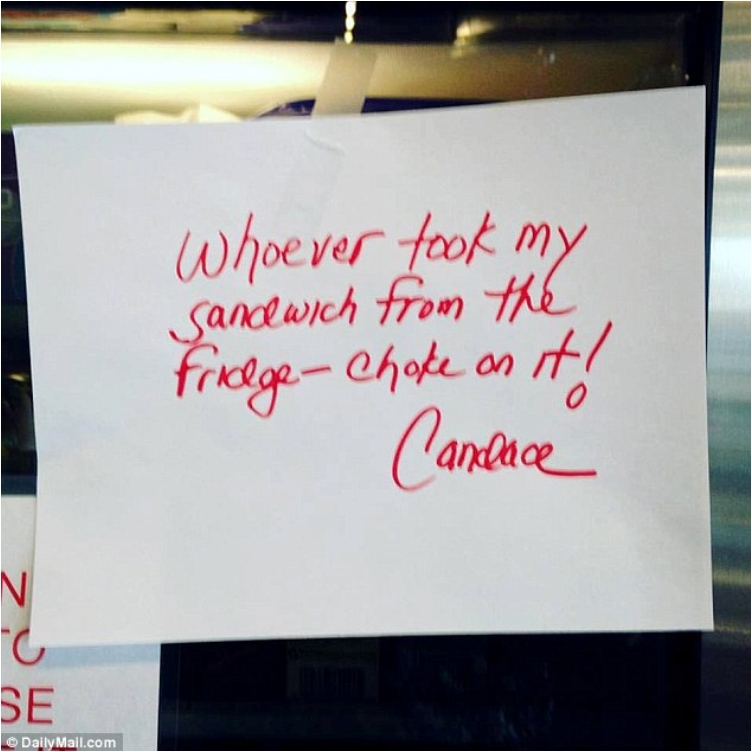 Whoever took my
sandwich from the
fridge - choke on it!
Candace
N
TO
SE
© DailyMail.com